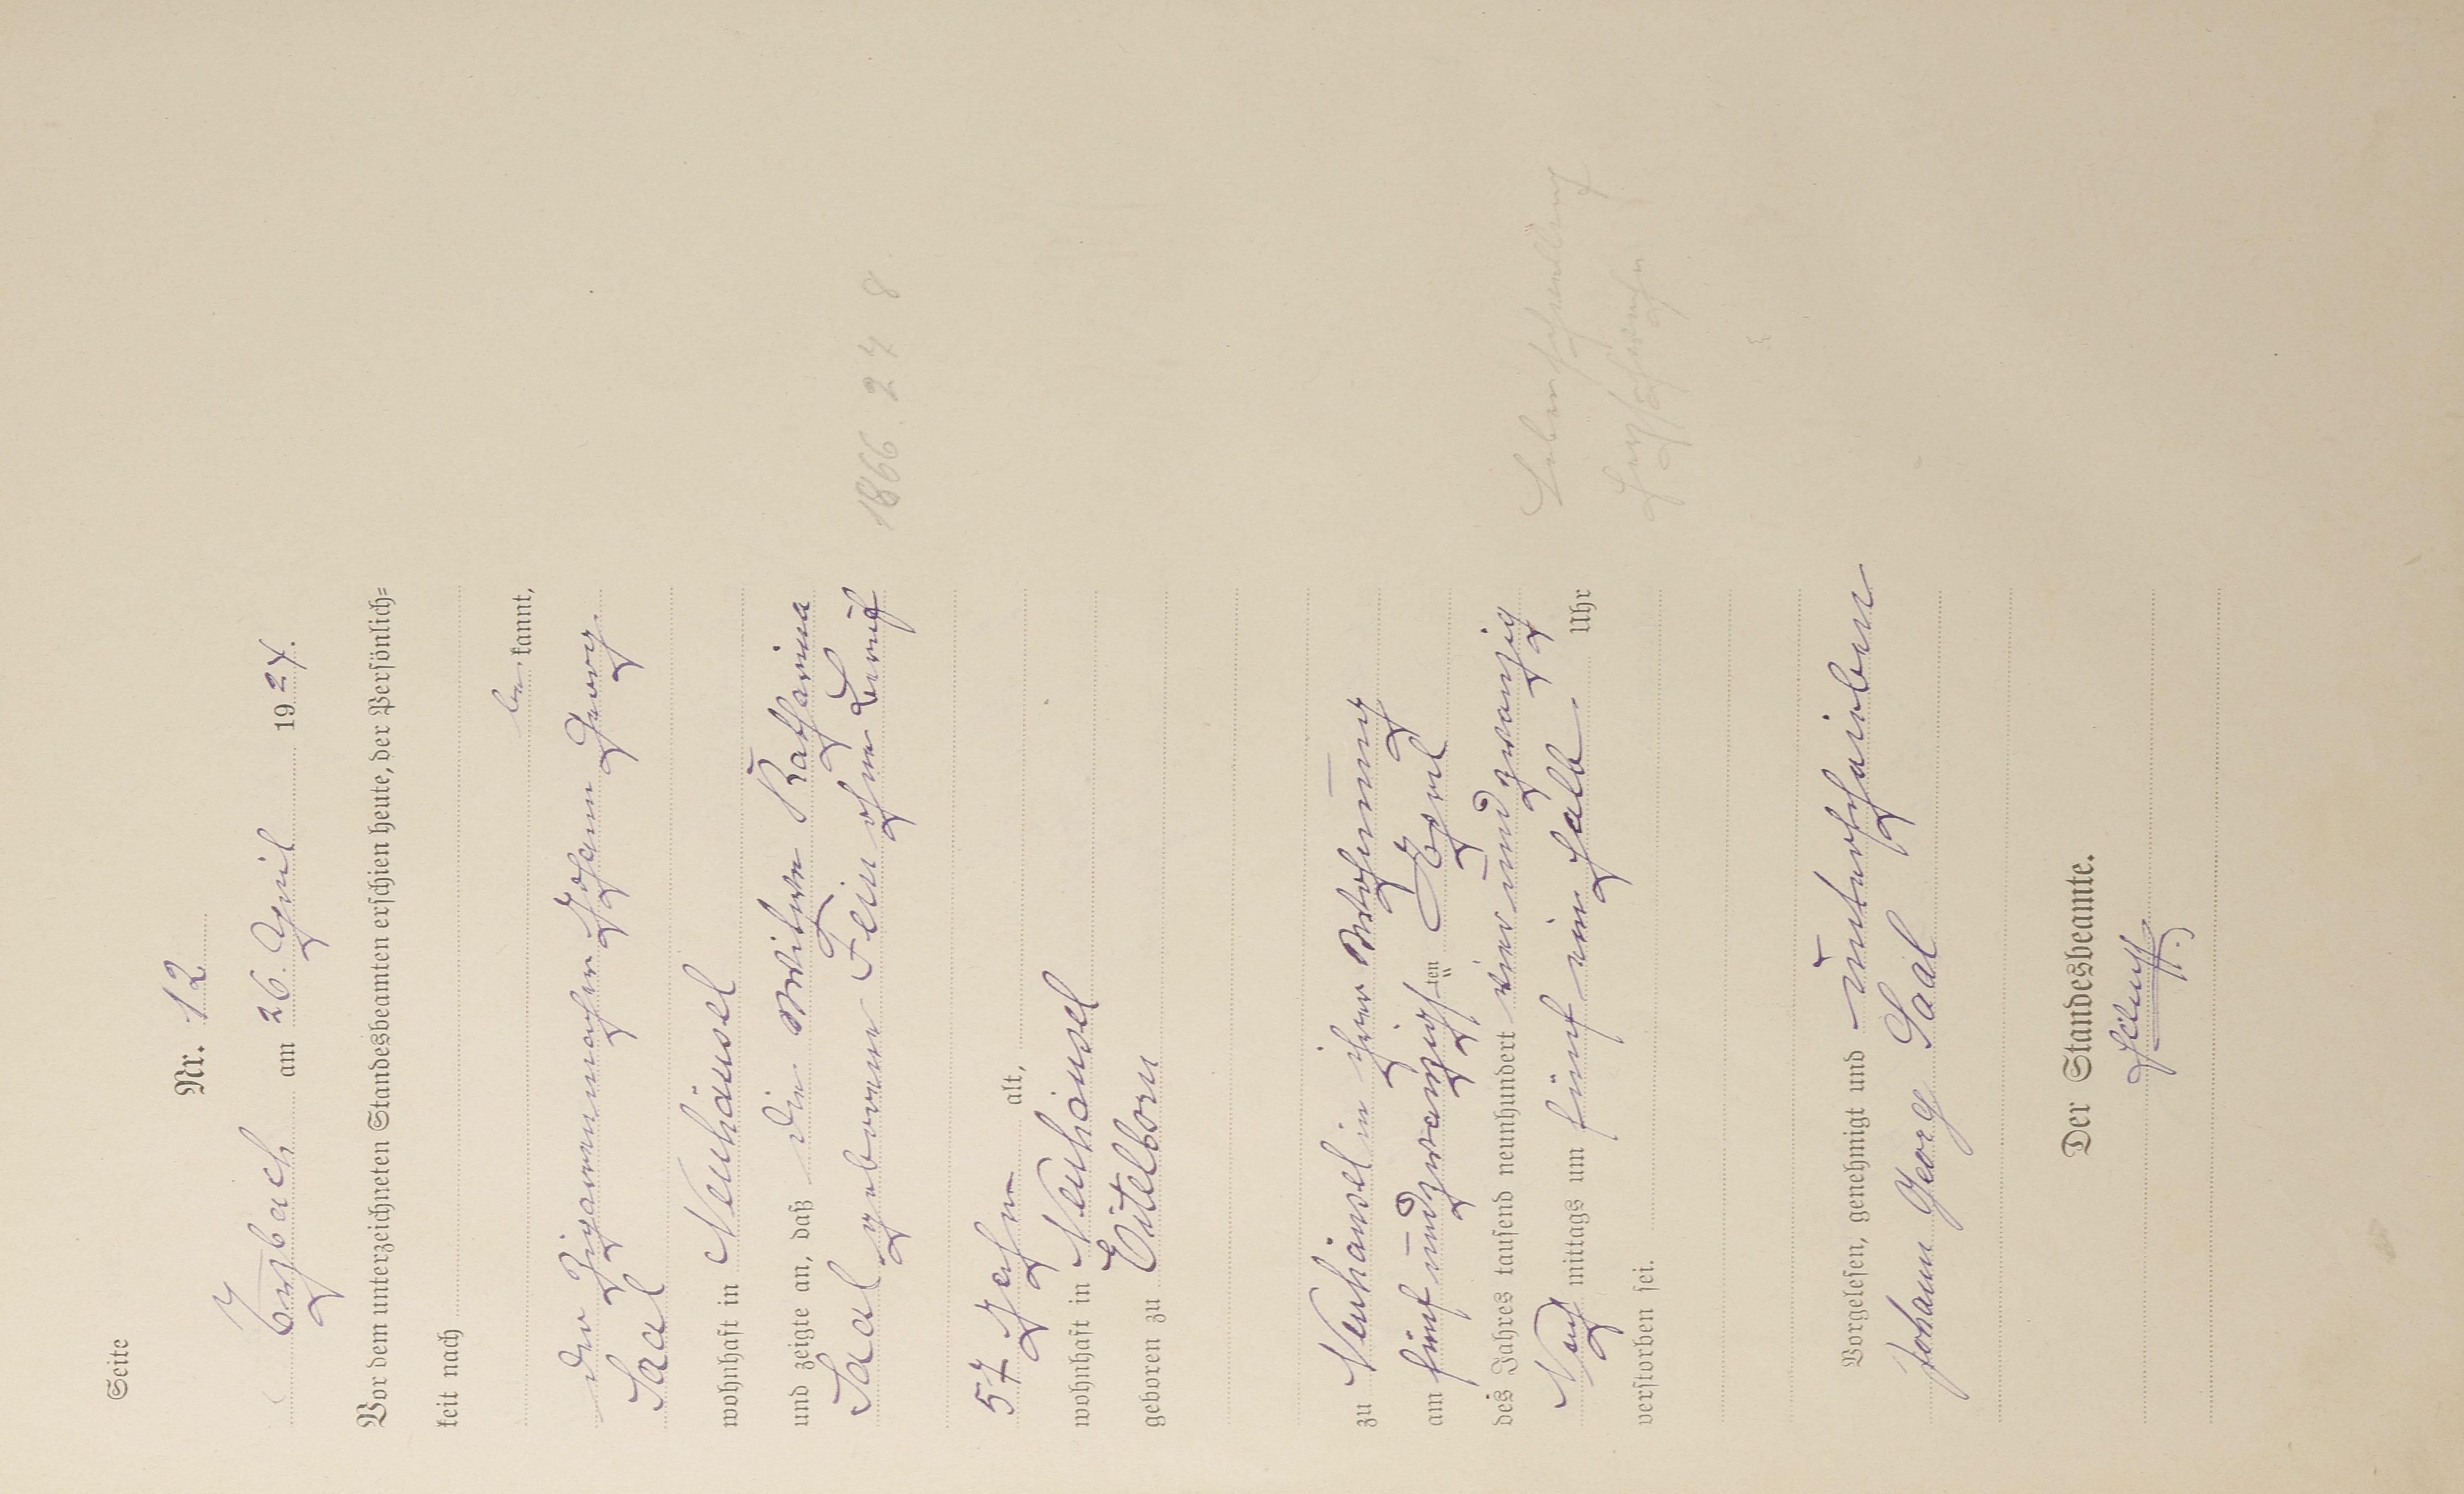 Seite
Nr. 12
am 26. April 1924.
Vor dem unterzeichneten Standesbeamten erschien heute, der Persönlich=
keit nach
be kannt,
der Zigarrenmacher Johann Georg
Saal
wohnhaft in Neuhäusel
und zeigte an, daß die Witwe Katharina
Saal geborene Fein ohne Beruf
1866 24 8
57 Jahre alt,
wohnhaft in Neuhäusel
geboren zu Eitelborn
zu Neuhäusel in ihrer Wohnung
am fünfundzwanzigsten April
des Jahres tausend neunhundert vierundzwanzig
Nach mittags um fünf ein halb Uhr
verstorben sei.
Vorgelesen, genehmigt und unterschrieben
Johann Georg Saal
Der Standesbeamte.